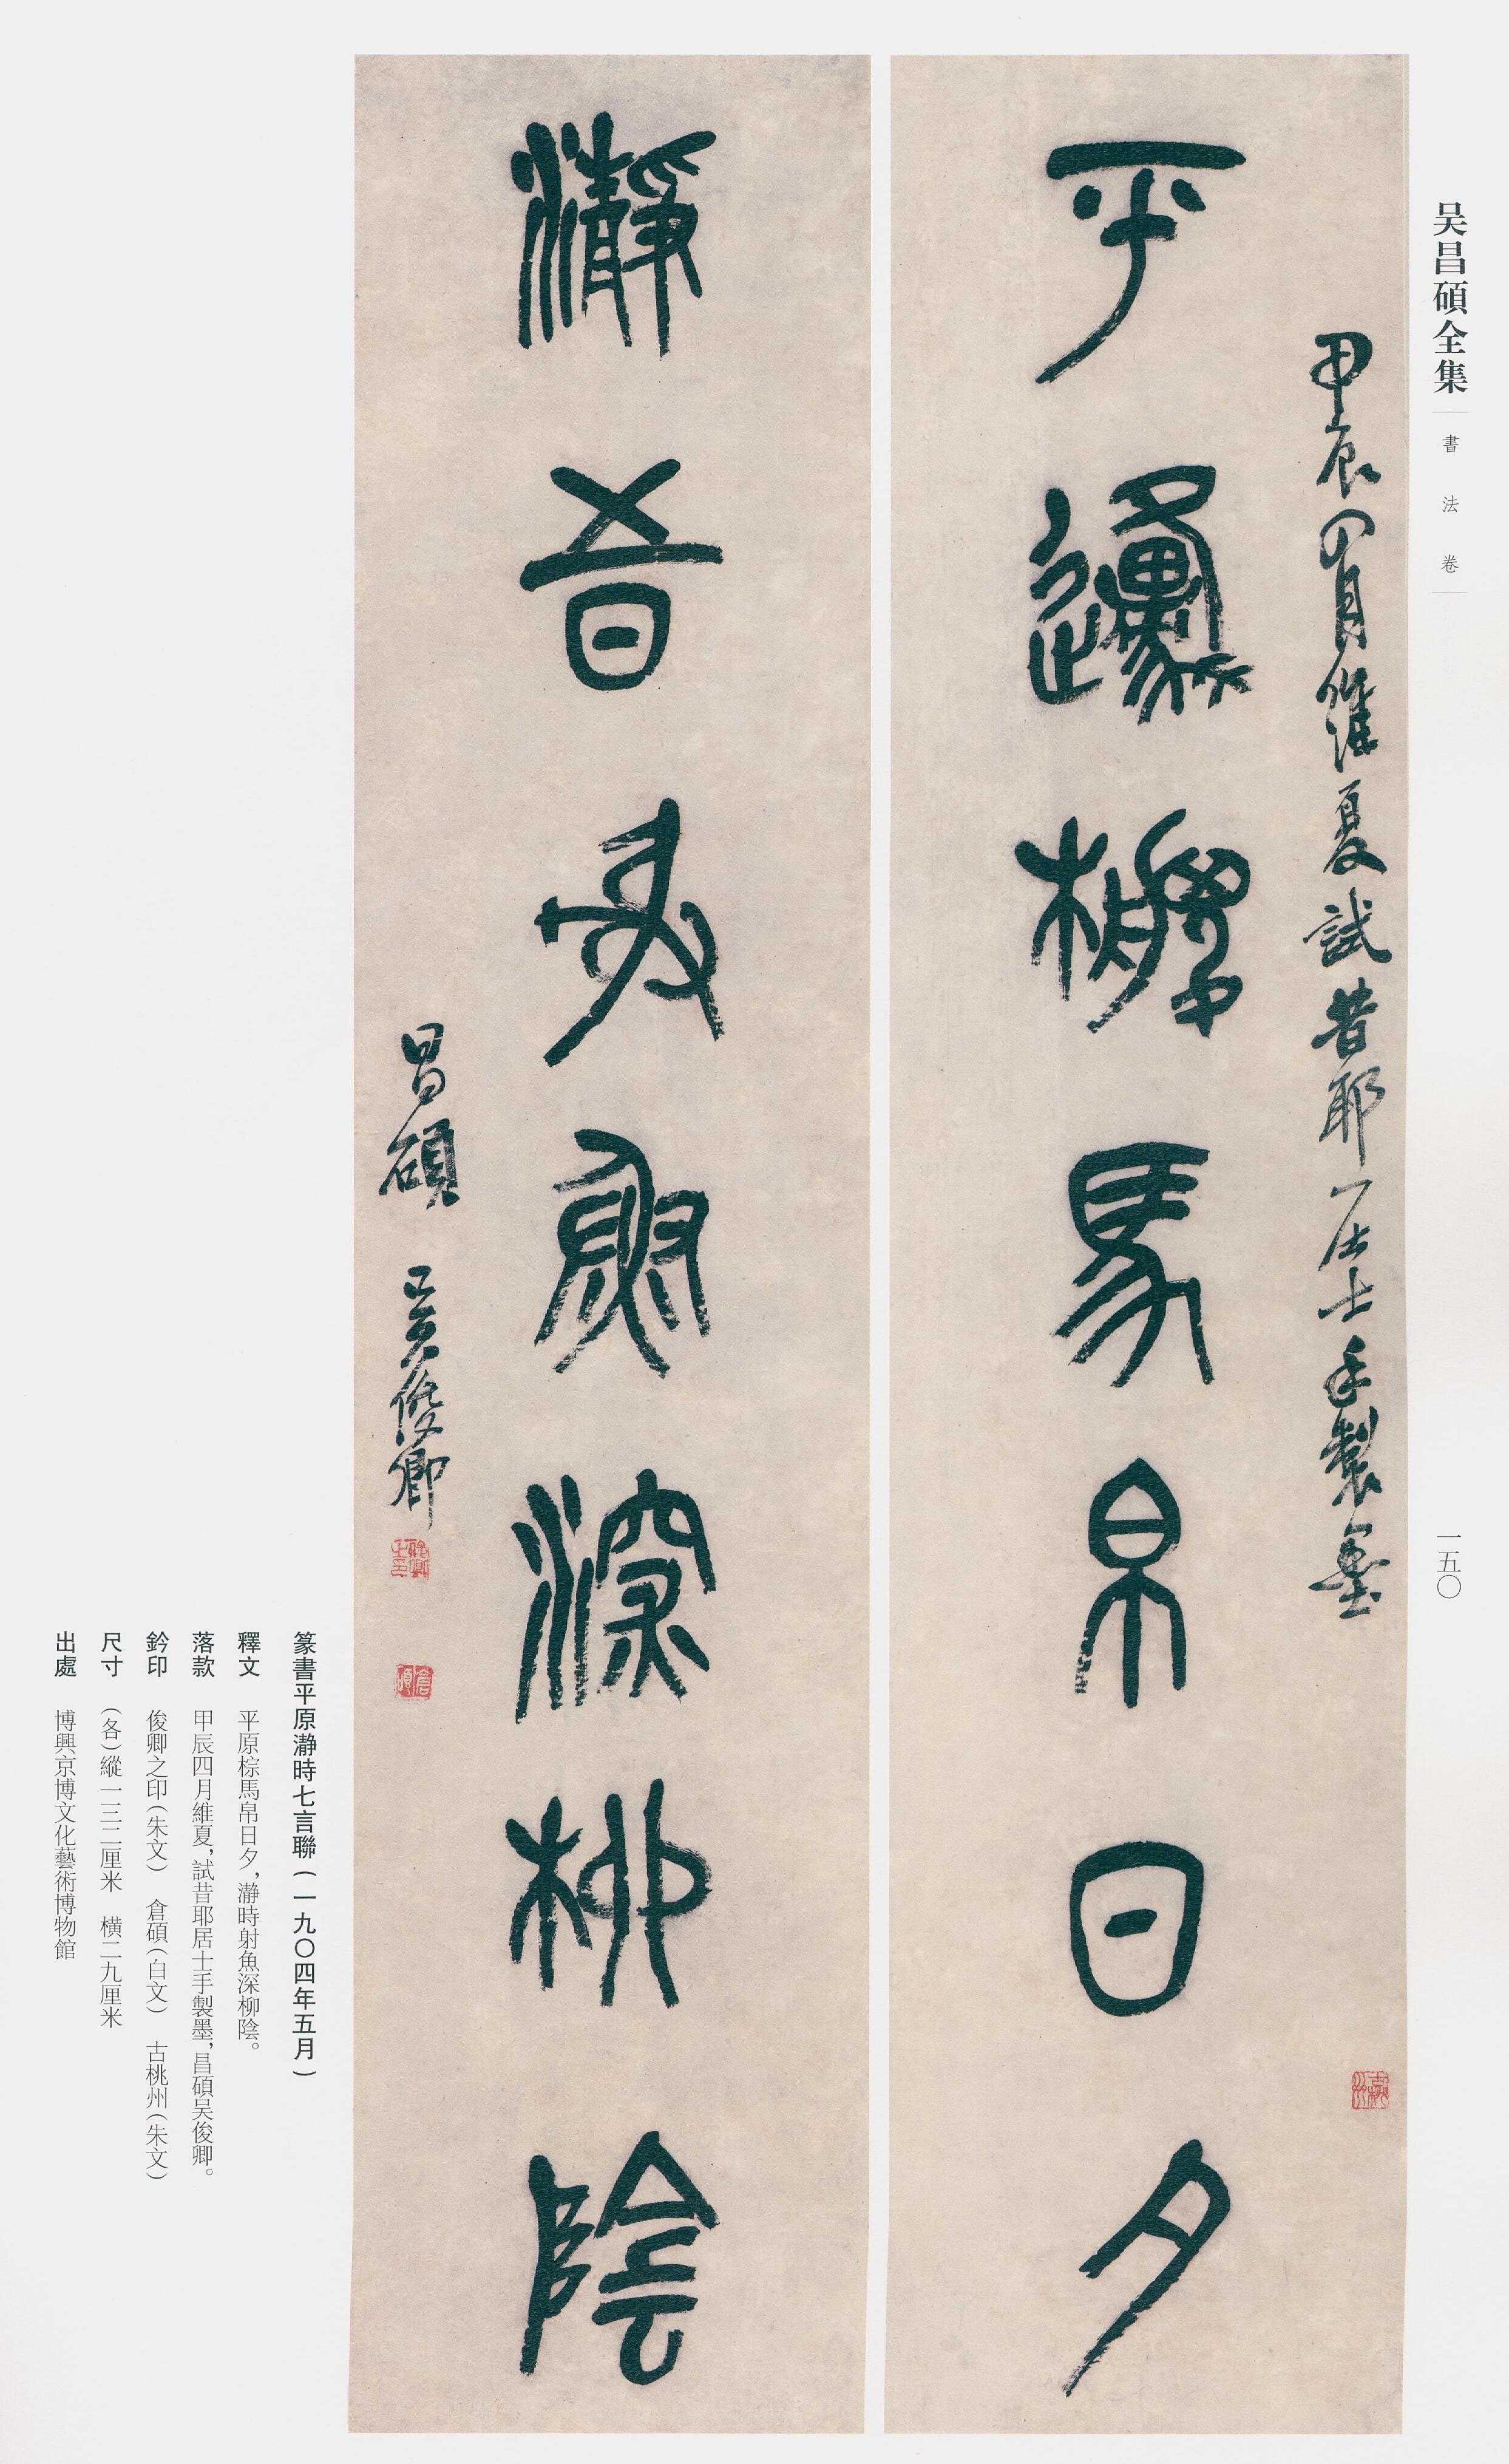 吴昌碩全集
書法卷
一五〇
甲辰四月維夏試昔耶居士手製墨
平原棕馬帛日夕
瀞時射魚深柳陰
昌碩吴俊卿
俊卿之印
倉碩
古桃州
篆書平原瀞時七言聯(一九〇四年五月)
釋文 平原棕馬帛日夕,瀞時射魚深柳陰。
落款 甲辰四月維夏,試昔耶居士手製墨,昌碩吴俊卿。
鈐印 俊卿之印(朱文) 倉碩(白文) 古桃州(朱文)
尺寸 (各)縱一三二厘米 橫二九厘米
出處 博興京博文化藝術博物館